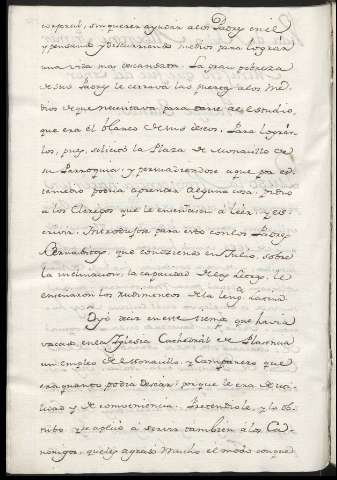 corporal, sin querer ayudar a los Padres en el
y pensando y discurriendo medios para lograr
una vida mas descansada. La gran pobreza
de sus Padres le cerrava las puertas a los me-
dios de que necesitava para darse al estudio,
que era el blanco de sus deseos. Para lograr-
los, pues, solicitò la Plaza de Monaxillo de
su Parroquia; y persuadiendose a que por es-
te medio podria aprender alguna cosa, pidio
a los Clerigos que le enseñasen à leer, y es-
crivir. Introduxose para esto con los Padres
Bernabitas, que conociendo en Julio, sobre
la inclinacion, la capacidad de las Letras, le
enseñaron los rudimentos de la lengua latina.
Oyò decir en este tiempo, que havia
vacado en la Iglesia Cathedral de Plasencia
un empleo de Monaxillo, y Campanero que
era quanto podia desear: porque le era de uti-
lidad y de conveniencia. Pretendiole, y lo ob-
tubo y se aplicò a servir tambien a los Ca-
nonigos, que les agradò mucho el modo con que